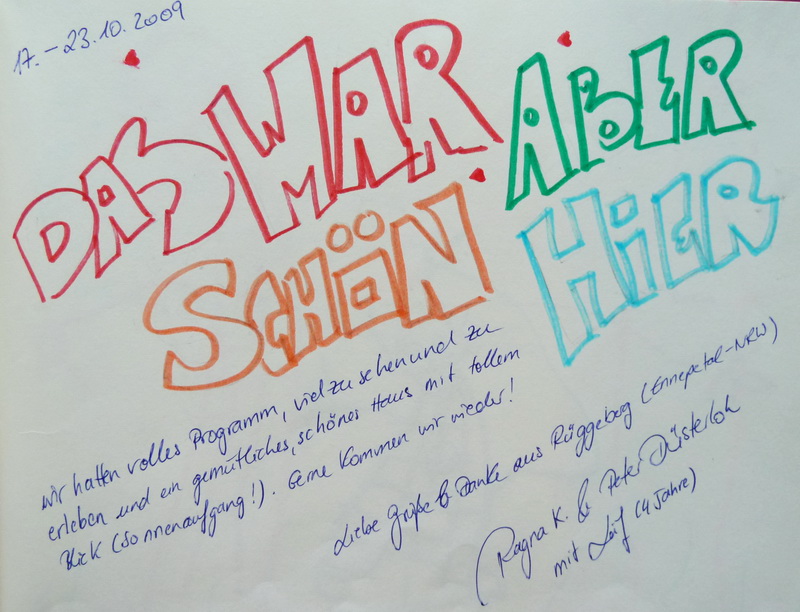 17. – 23.10.2009
DAS WAR ABER
SCHÖN HIER
wir hatten volles Programm, viel zu sehen und zu
erleben und ein gemütliches, schönes Haus mit tollem
Blick (Sonnenaufgang!). Gerne kommen wir wieder!
Liebe Grüße & Danke aus Rüggeberg (Ennepetal-NRW)
Ragna K. & Peter Düsterloh
mit Leif (4 Jahre)